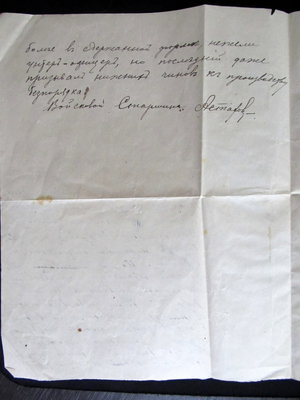 более в сдержанной форме нежели
унтер-офицер, но последний даже
призывал нижних чинов къ производству
безпорядка
Войсковой Старшина